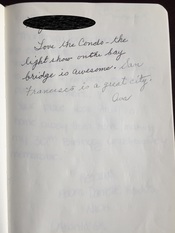 Love the Condo - the
light show on the bay
bridge is awesome. San
Francisco is a great city.